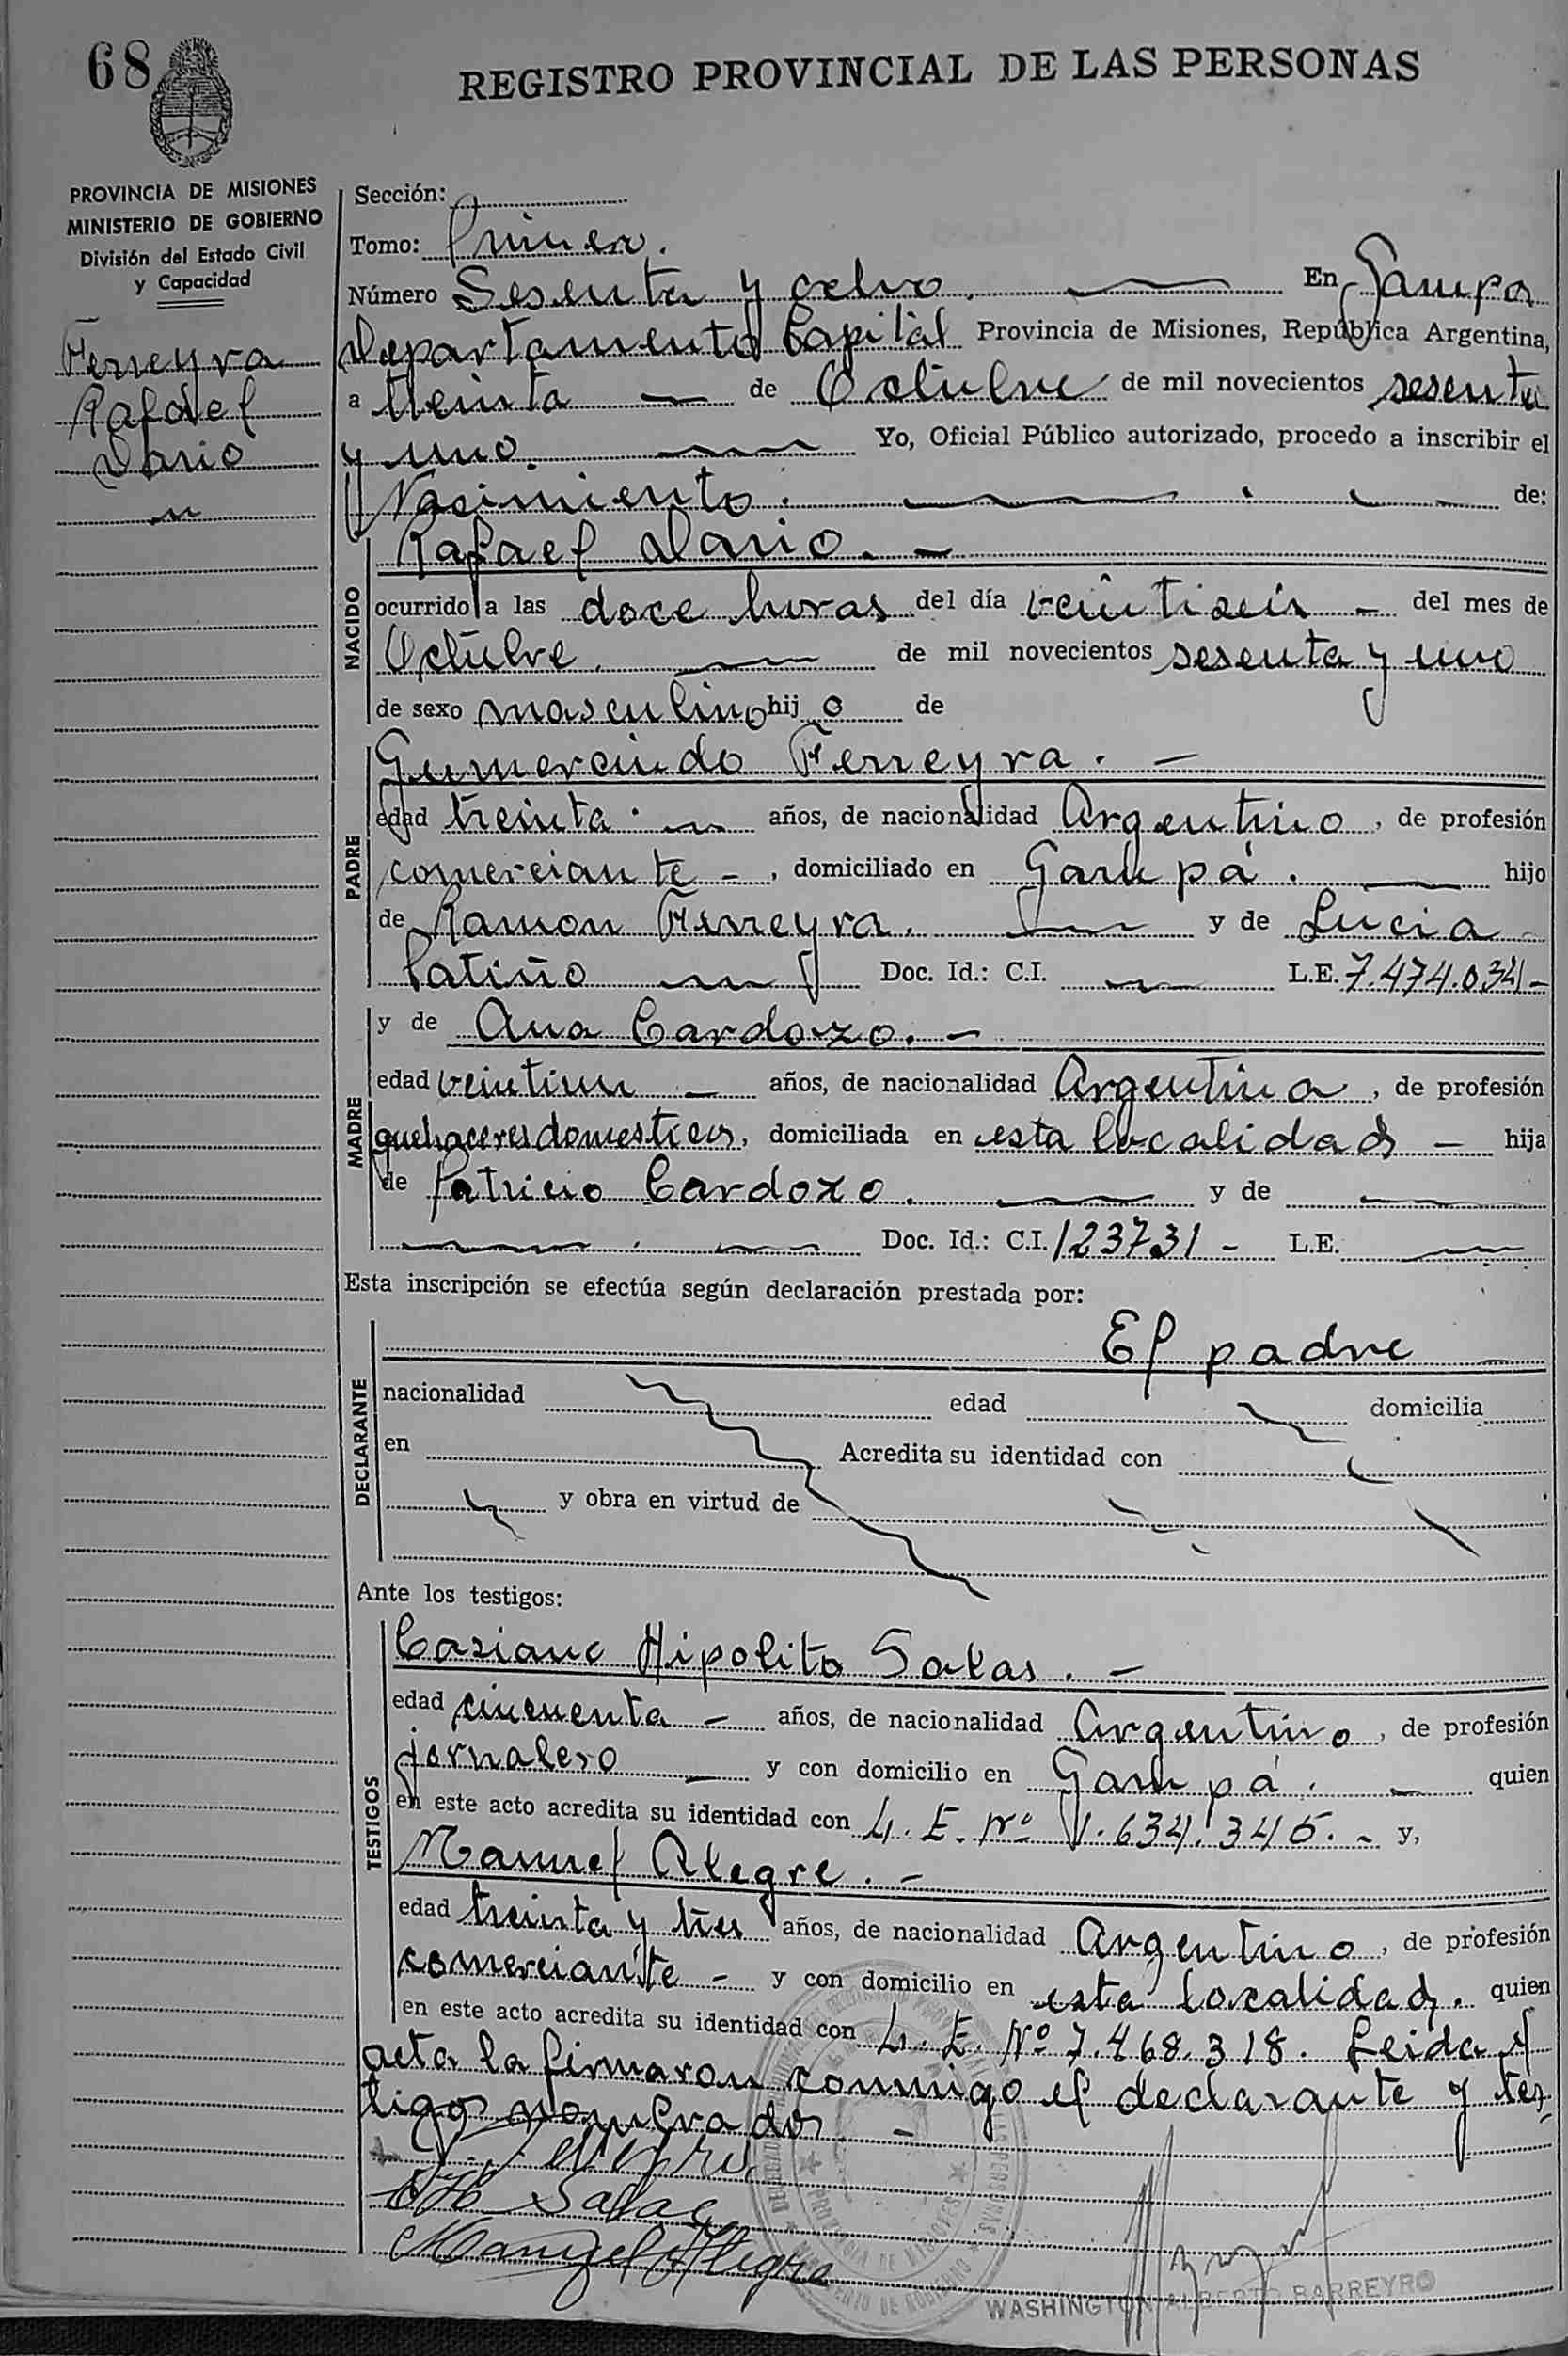 68
REGISTRO PROVINCIAL DE LAS PERSONAS
PROVINCIA DE MISIONES
MINISTERIO DE GOBIERNO
División del Estado Civil
y Capacidad
Ferreyra
Rafael
Dario
Sección:
Tomo: Primero.
Número Sesenta y ocho. En Garupa
Departamento Capital Provincia de Misiones, República Argentina,
a treinta de Octubre de mil novecientos sesenta
y uno. Yo, Oficial Público autorizado, procedo a inscribir el
Nacimiento. de:
NACIDO
Rafael Dario. -
ocurrido a las doce horas del día veintiseis - del mes de
Octubre. de mil novecientos sesenta y uno
de sexo masculino hijo de
PADRE
Gumercindo Ferreyra. -
edad treinta. años, de nacionalidad Argentino, de profesión
comerciante -, domiciliado en Garupá. hijo
de Ramon Ferreyra. y de Lucia
Patiño Doc. Id.: C.I. L.E. 7.474.034-
MADRE
y de Ana Cardozo. -
edad veintiun - años, de nacionalidad Argentina, de profesión
quehaceres domesticos, domiciliada en esta localidad - hija
de Patricio Cardozo. y de
Doc. Id.: C.I. 123731 - L.E.
Esta inscripción se efectúa según declaración prestada por:
DECLARANTE
El padre
nacionalidad edad domicilia
en Acredita su identidad con
y obra en virtud de
Ante los testigos:
TESTIGOS
Casiano Hipolito Salas. -
edad cincuenta - años, de nacionalidad Argentino, de profesión
jornalero y con domicilio en Garupá. - quien
en este acto acredita su identidad con L. E. Nº 1.634.345. - y,
Manuel Alegre. -
edad treinta y tres años, de nacionalidad Argentino, de profesión
comerciante - y con domicilio en esta localidad. quien
en este acto acredita su identidad con L. E. Nº 7.468.318. Leida el
acta la firmaron conmigo el declarante y tes-
tigos nombrados. -
Salas
Manuel Alegre
PROVINCIA DE MISIONES
WASHINGTON ALBERTO BARREYRO